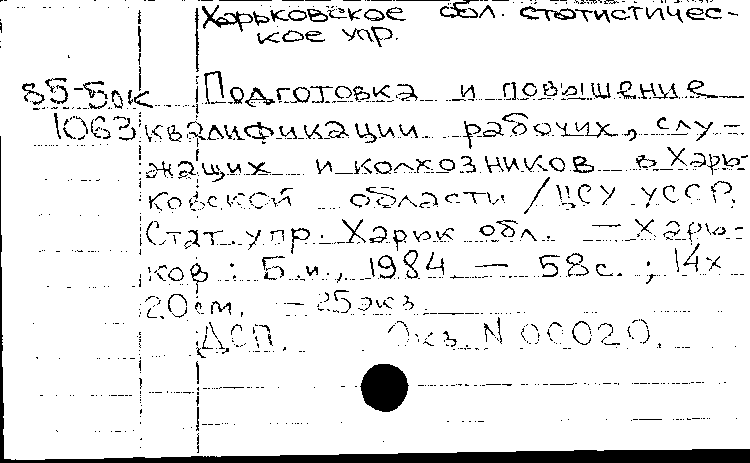 Харьковское обл. статистичес-
кое упр.
85-5ок Подготовка и повышение
1063 квалификации рабочих, слу-
жащих и колхозников в Харь-
ковской области / ЦСУ УССР.
Стат. упр. Харьк обл. — Харь-
ков : Б.и., 1984. — 58с. ; 14х
20см. — 25экз.
ДСП. Экз. N 00020.